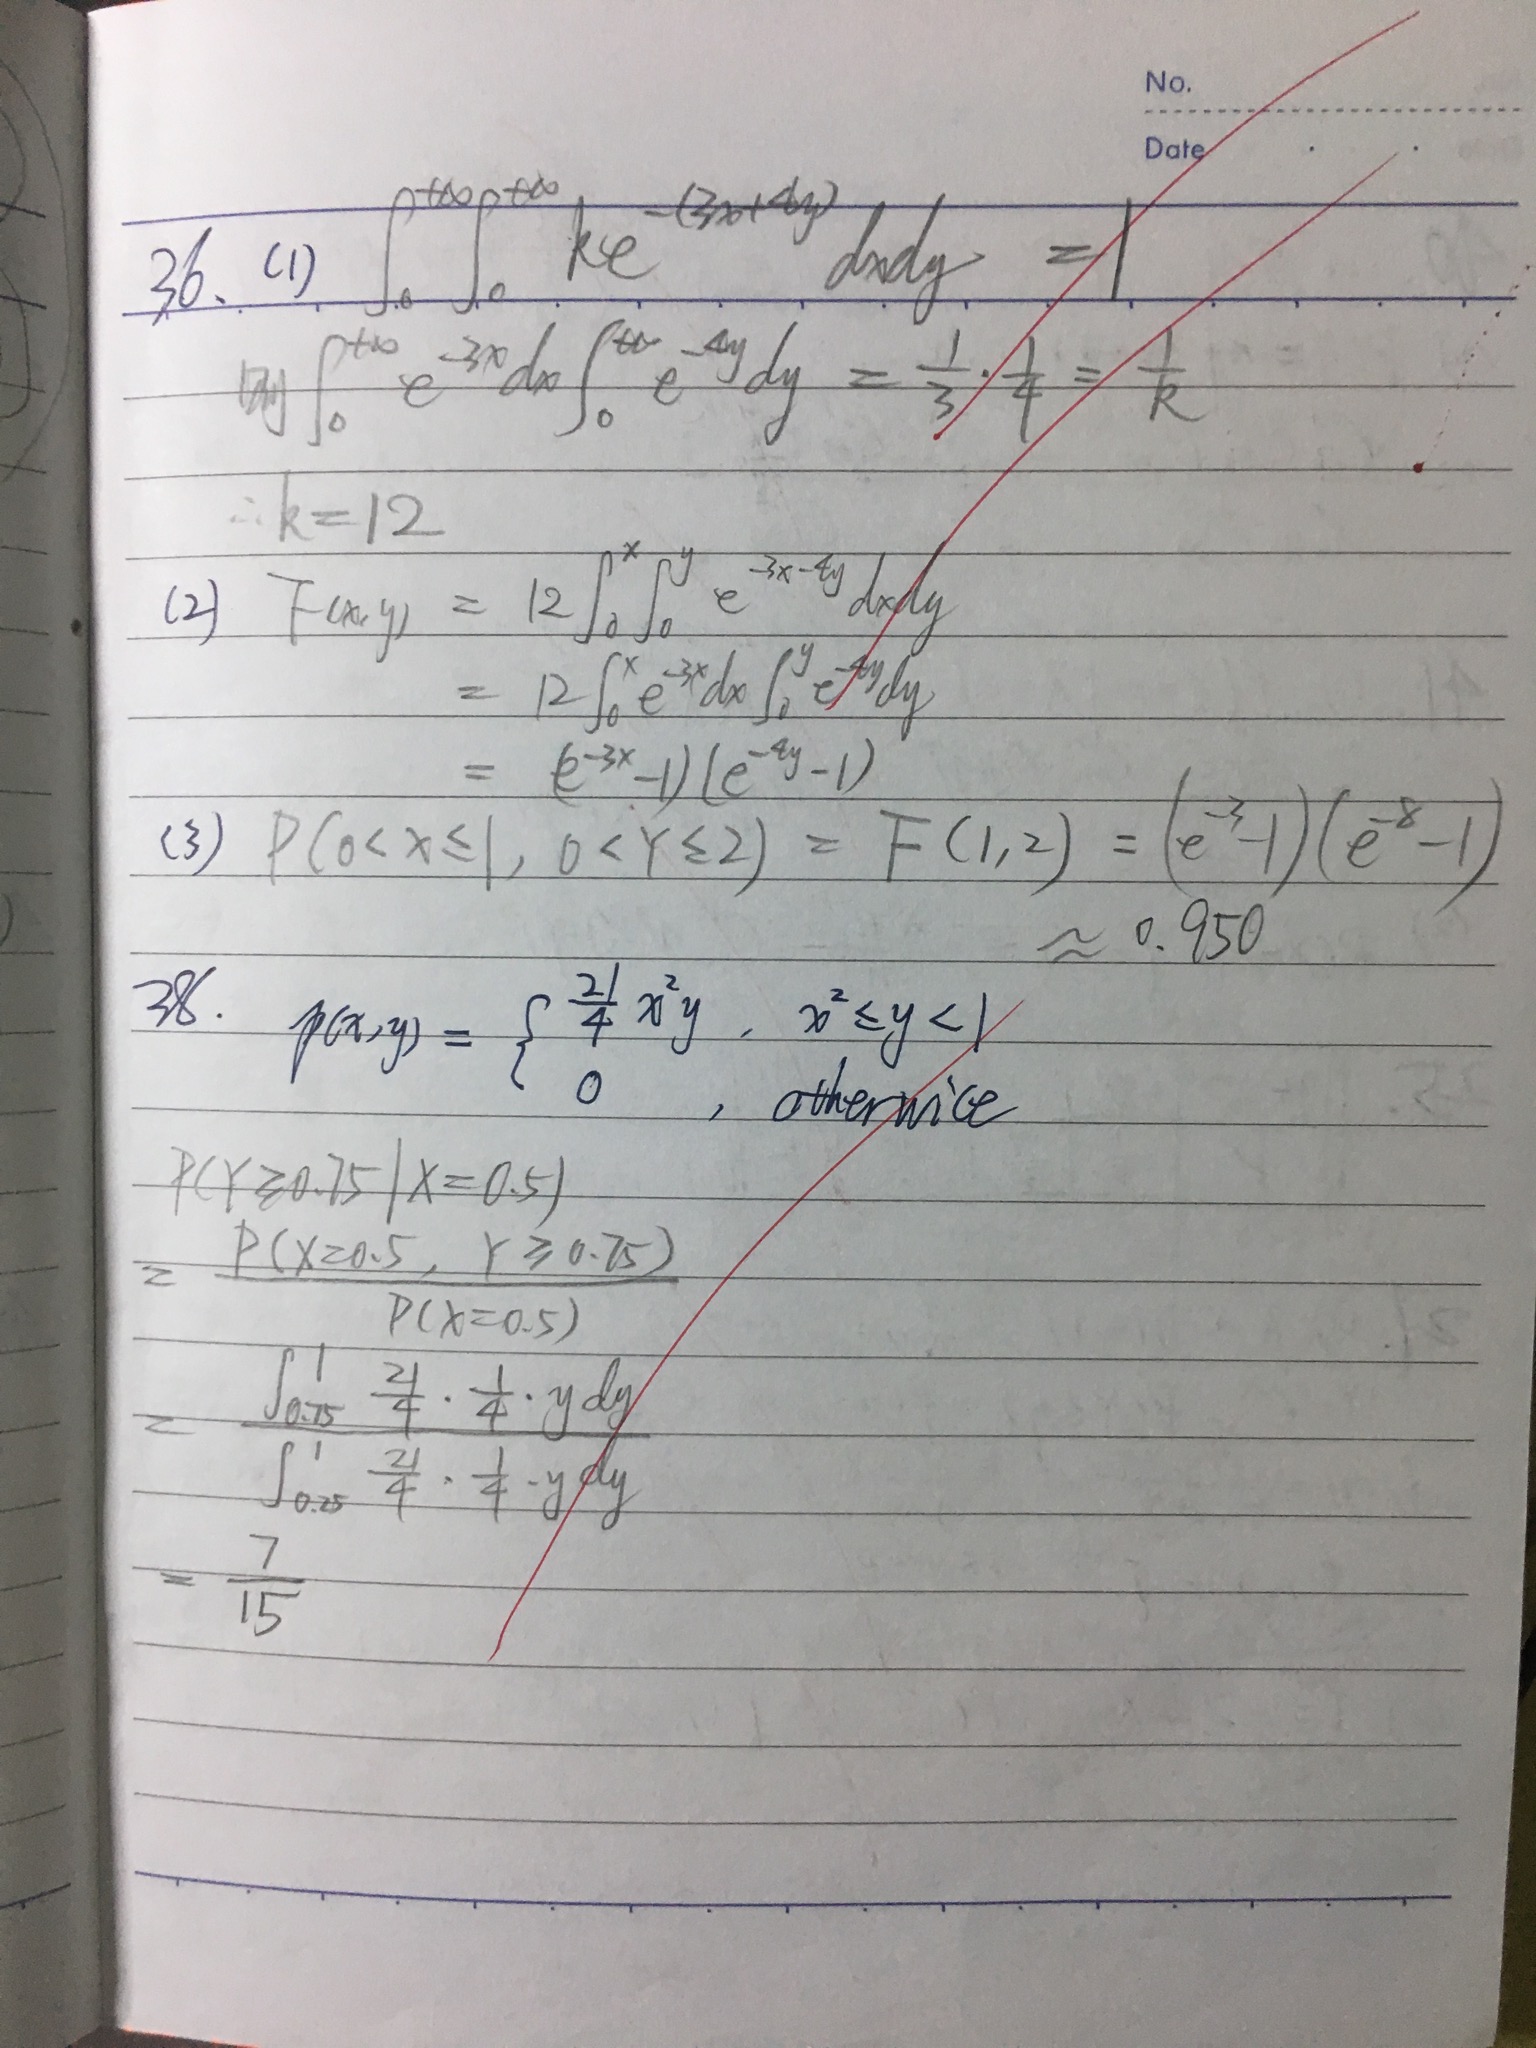 No.
Date
36. (1) ∫₀^{+∞} ∫₀^{+∞} ke^{-(3x+4y)} dxdy = 1
即 ∫₀^{+∞} e^{-3x} dx ∫₀^{+∞} e^{-4y} dy = 1/3 · 1/4 = 1/k
∴ k = 12
(2) F(x,y) = 12 ∫₀^x ∫₀^y e^{-3x-4y} dxdy
= 12 ∫₀^x e^{-3x} dx ∫₀^y e^{-4y} dy
= (e^{-3x} - 1)(e^{-4y} - 1)
(3) P(0<X≤1, 0<Y≤2) = F(1,2) = (e^{-3} - 1)(e^{-8} - 1)
≈ 0.950
38. p(x,y) = { 21/4 x²y , x² ≤ y < 1
0 , otherwice
P(Y≥0.75 | X=0.5)
= P(X=0.5, Y≥0.75) / P(X=0.5)
= ∫_{0.75}^1 21/4 · 1/4 · y dy / ∫_{0.25}^1 21/4 · 1/4 · y dy
= 7/15